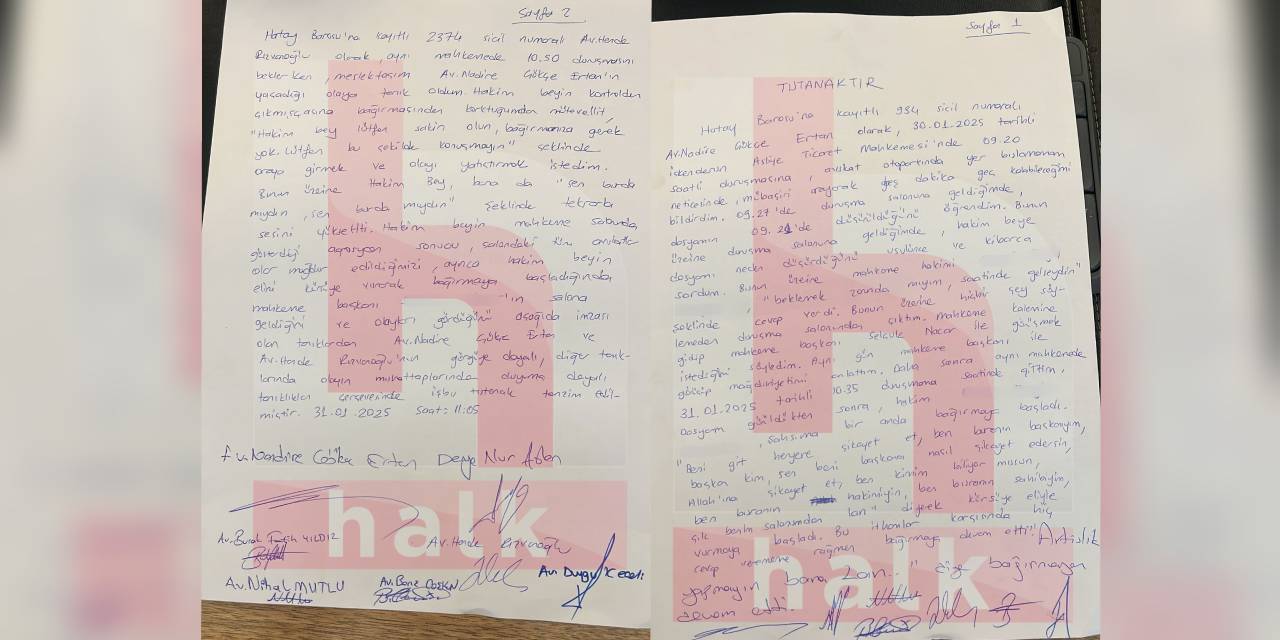 Sayfa 2
Hatay Barosu'na kayıtlı 2374 sicil numaralı Av. Hande
Rızvanoğlu olarak, aynı mahkemede 10.50 duruşmasını
beklerken, meslektaşım Av. Nadire Gökçe Ertan'ın
yaşadığı olaya tanık oldum. Hakim beyin kontrolden
çıkmışçasına bağırmasından korktuğumdan mütevellit,
"Hakim bey lütfen sakin olun, bağırmanıza gerek
yok. Lütfen bu şekilde konuşmayın" şeklinde
araya girmek ve olayı yatıştırmak istedim.
Bunun üzerine Hakim Bey, bana da "sen burda
mıydın, sen burda mıydın" şeklinde tekrarla
sesini yükseltti. Hakim beyin mahkeme salonunda
gösterdiği agresyon sonucu, salondaki tüm avukatlar
olar mağdur edildiğimizi, ayrıca hakim beyin
elini kürsüye vurarak bağırmaya başladığında
mahkeme başkanı 'ın salona
geldiğini ve olayları gördüğünü aşağıda imzası
olan tanıklardan Av. Nadire Gökçe Ertan ve
Av. Hande Rızvanoğlu'nun görgüye dayalı, diğer tanık-
larında olayın muhattaplarından duyuma dayalı
tanıklıkları çerçevesinde işbu tutanak tanzim edil-
miştir. 31.01.2025 saat: 11:05
Av. Nadire Gökçe Ertan Derya Nur Aslan
Av. Burak YILDIZ
Av. Hande Rızvanoğlu
Av. Nihal MUTLU
Av. Duygu Keceli
halk
Sayfa 1
TUTANAKTIR
Hatay Barosu'na kayıtlı 934 sicil numaralı
Av. Nadire Gökçe Ertan olarak, 30.01.2025 tarihli
İskenderun Asliye Ticaret Mahkemesi'nde 09.20
saatli duruşmasına, avukat otoparkında yer bulamamam
neticesinde, mübaşiri arayarak geç dakika geç kalabileceğimi
bildirdim. 09.27'de duruşma salonuna geldiğimde,
dosyamın 09.21'de düşürüldüğünü öğrendim. Bunun
üzerine duruşma salonuna geldiğimde, hakim beye
dosyamı neden düşürdüğünü usulünce ve kibarca
sordum. Bunun üzerine mahkeme hakimi
"beklemek zorunda mıyım, saatinde gelseydin"
şeklinde cevap verdi. Bunun üzerine hiçbir şey söy-
lemeden duruşma salonundan çıktım. Mahkeme kalemine
gidip mahkeme başkanı Selcule Nacar ile görüşmek
istediğimi söyledim. Aynı gün mahkeme başkanı ile
görüşüp mağduriyetimi anlattım. Daha sonra aynı mahkemede
31.01.2025 tarihli 10.35 duruşmama saatinde gittim,
Dosyam görüldükten sonra, hakim
, şahsıma bir anda bağırmaya başladı.
"Beni git heryere şikayet et, ben buranın başkanıyım,
başkan kim, sen beni başkana nasıl şikayet edersin,
Allah'ına şikayet et, ben kimim biliyor musun,
ben buranın hakimiyim, ben buranın sahibiyim,
çık benim salonumdan lan" diyerek kürsüye eliyle
vurmaya başladı. Bu ithamlar karşısında hiç
cevap vermememe rağmen bağırmaya devam etti. "Artistlik
yapmayın bana lan..." diye bağırmaya
devam etti.
halk